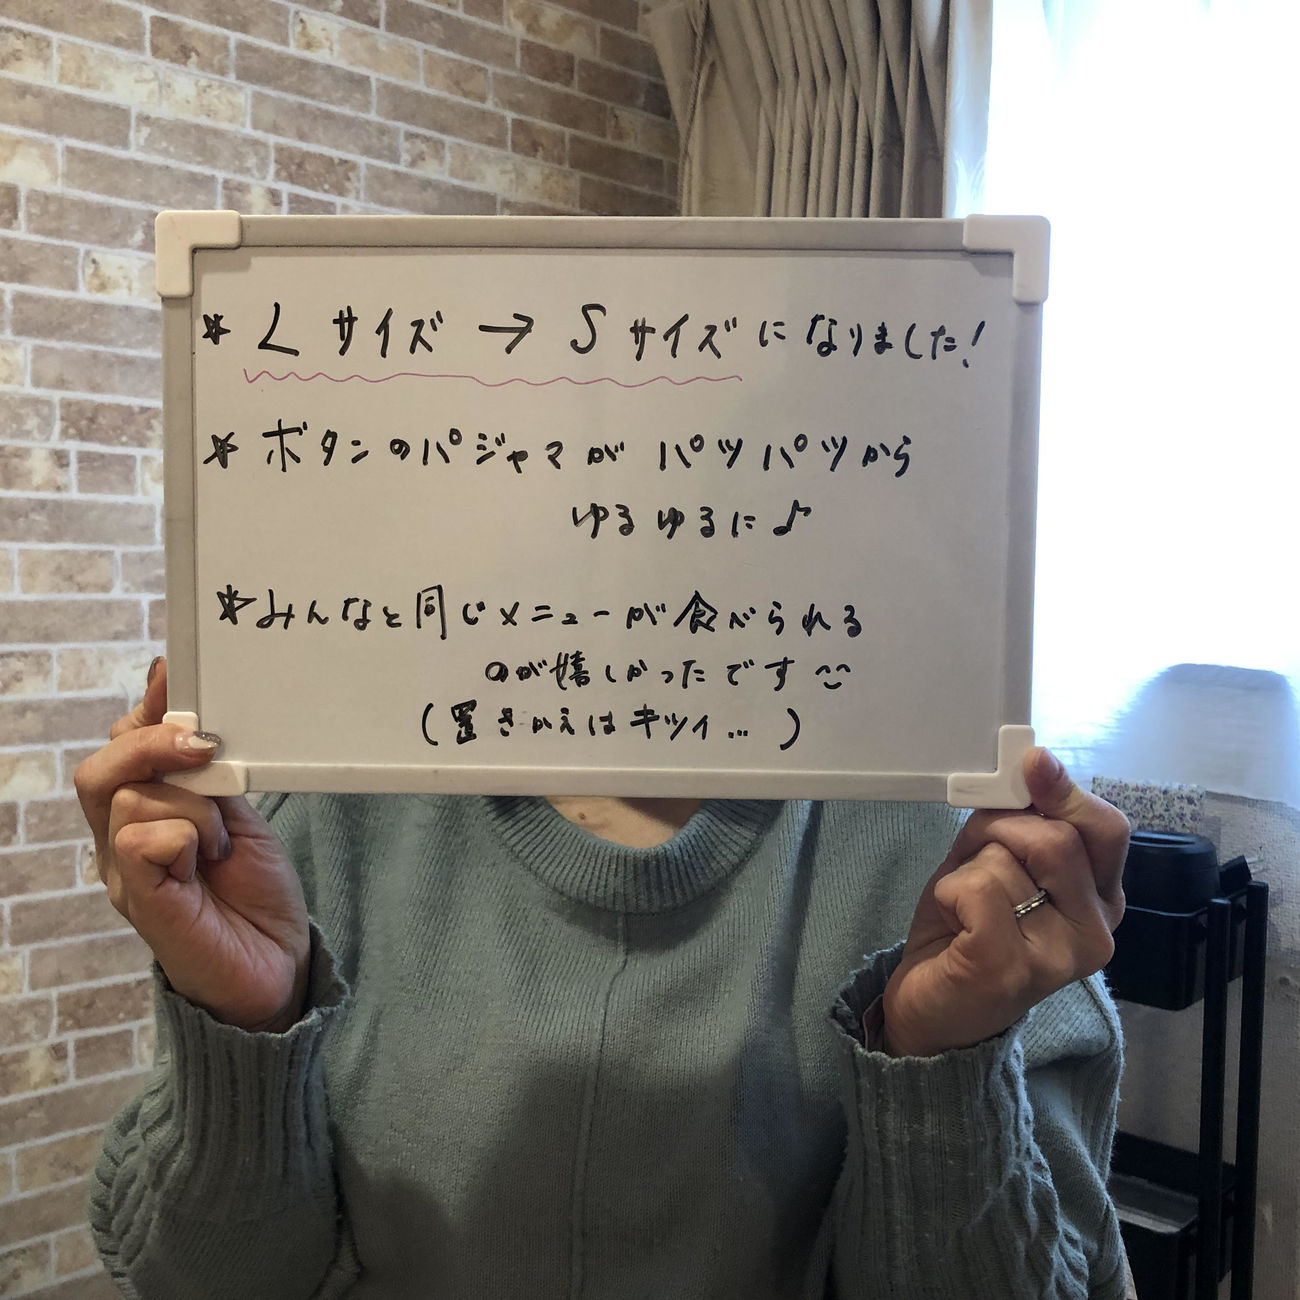 ☆ Lサイズ → Sサイズになりました!
☆ ボタンのパジャマがパツパツから
ゆるゆるに♪
☆みんなと同じメニューが食べられる
のが嬉しかったです^^
(置きかえはキツイ…)